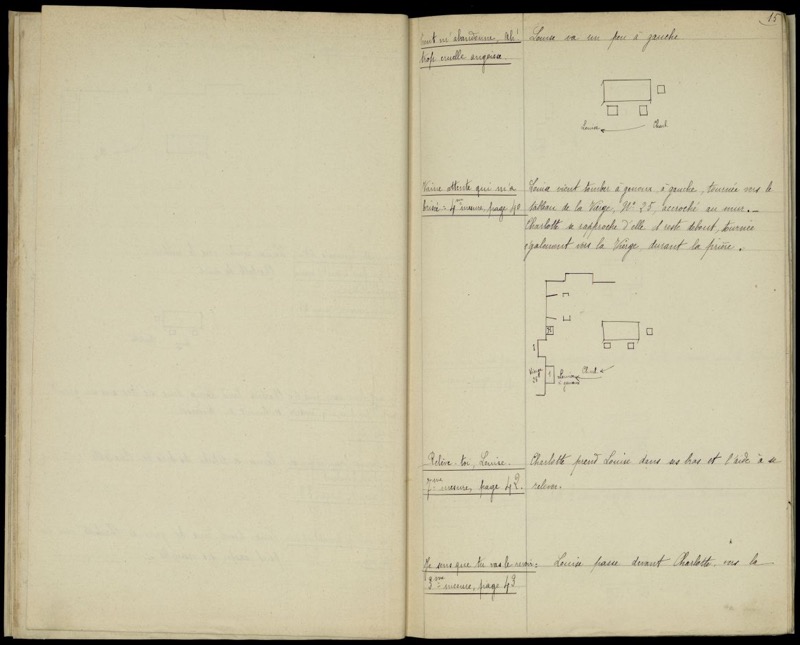 15
tout m'abandonne. Ah!
trop cruelle angoisse.
Louise va un peu à gauche
Louise
Charl.
Vaine attente qui m'a
brisée = 4me mesure, page 40
Louise vient tomber à genoux, à gauche, tournée vers le
tableau de la Vierge, No 25, accroché au mur. _
Charlotte se rapproche d'elle et reste debout, tournée
également vers la Vierge, durant la prière.
Vierge
25
1
Louise
à genoux
Charl.
Relève-toi, Louise.
mesure, page 42.
Charlotte prend Louise dans ses bras et l'aide à se
relever.
Je sens que tu vas le revoir =
3me mesure, page 43
Louise passe devant Charlotte, vers la